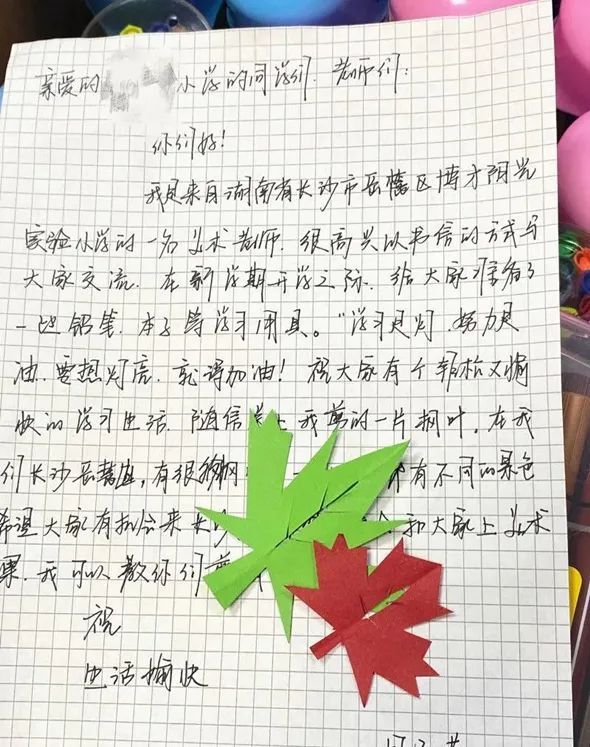 亲爱的 小学的同学们、老师们:
你们好!
我是来自湖南省长沙市岳麓区博才阳光
实验小学的一名美术老师。很高兴以书信的方式与
大家交流。在新学期开学之际,给大家准备了
一些铅笔、本子等学习用具。“学习是灯,努力是
油,要想灯亮,就得加油!祝大家有个轻松又愉
快的学习生活。随信 上我剪的一片枫叶,在我
们长沙岳麓山,有很多枫 有不同的景色
希望大家有机会来长沙 和大家上美术
课,我可以教你们剪
祝
生活愉快